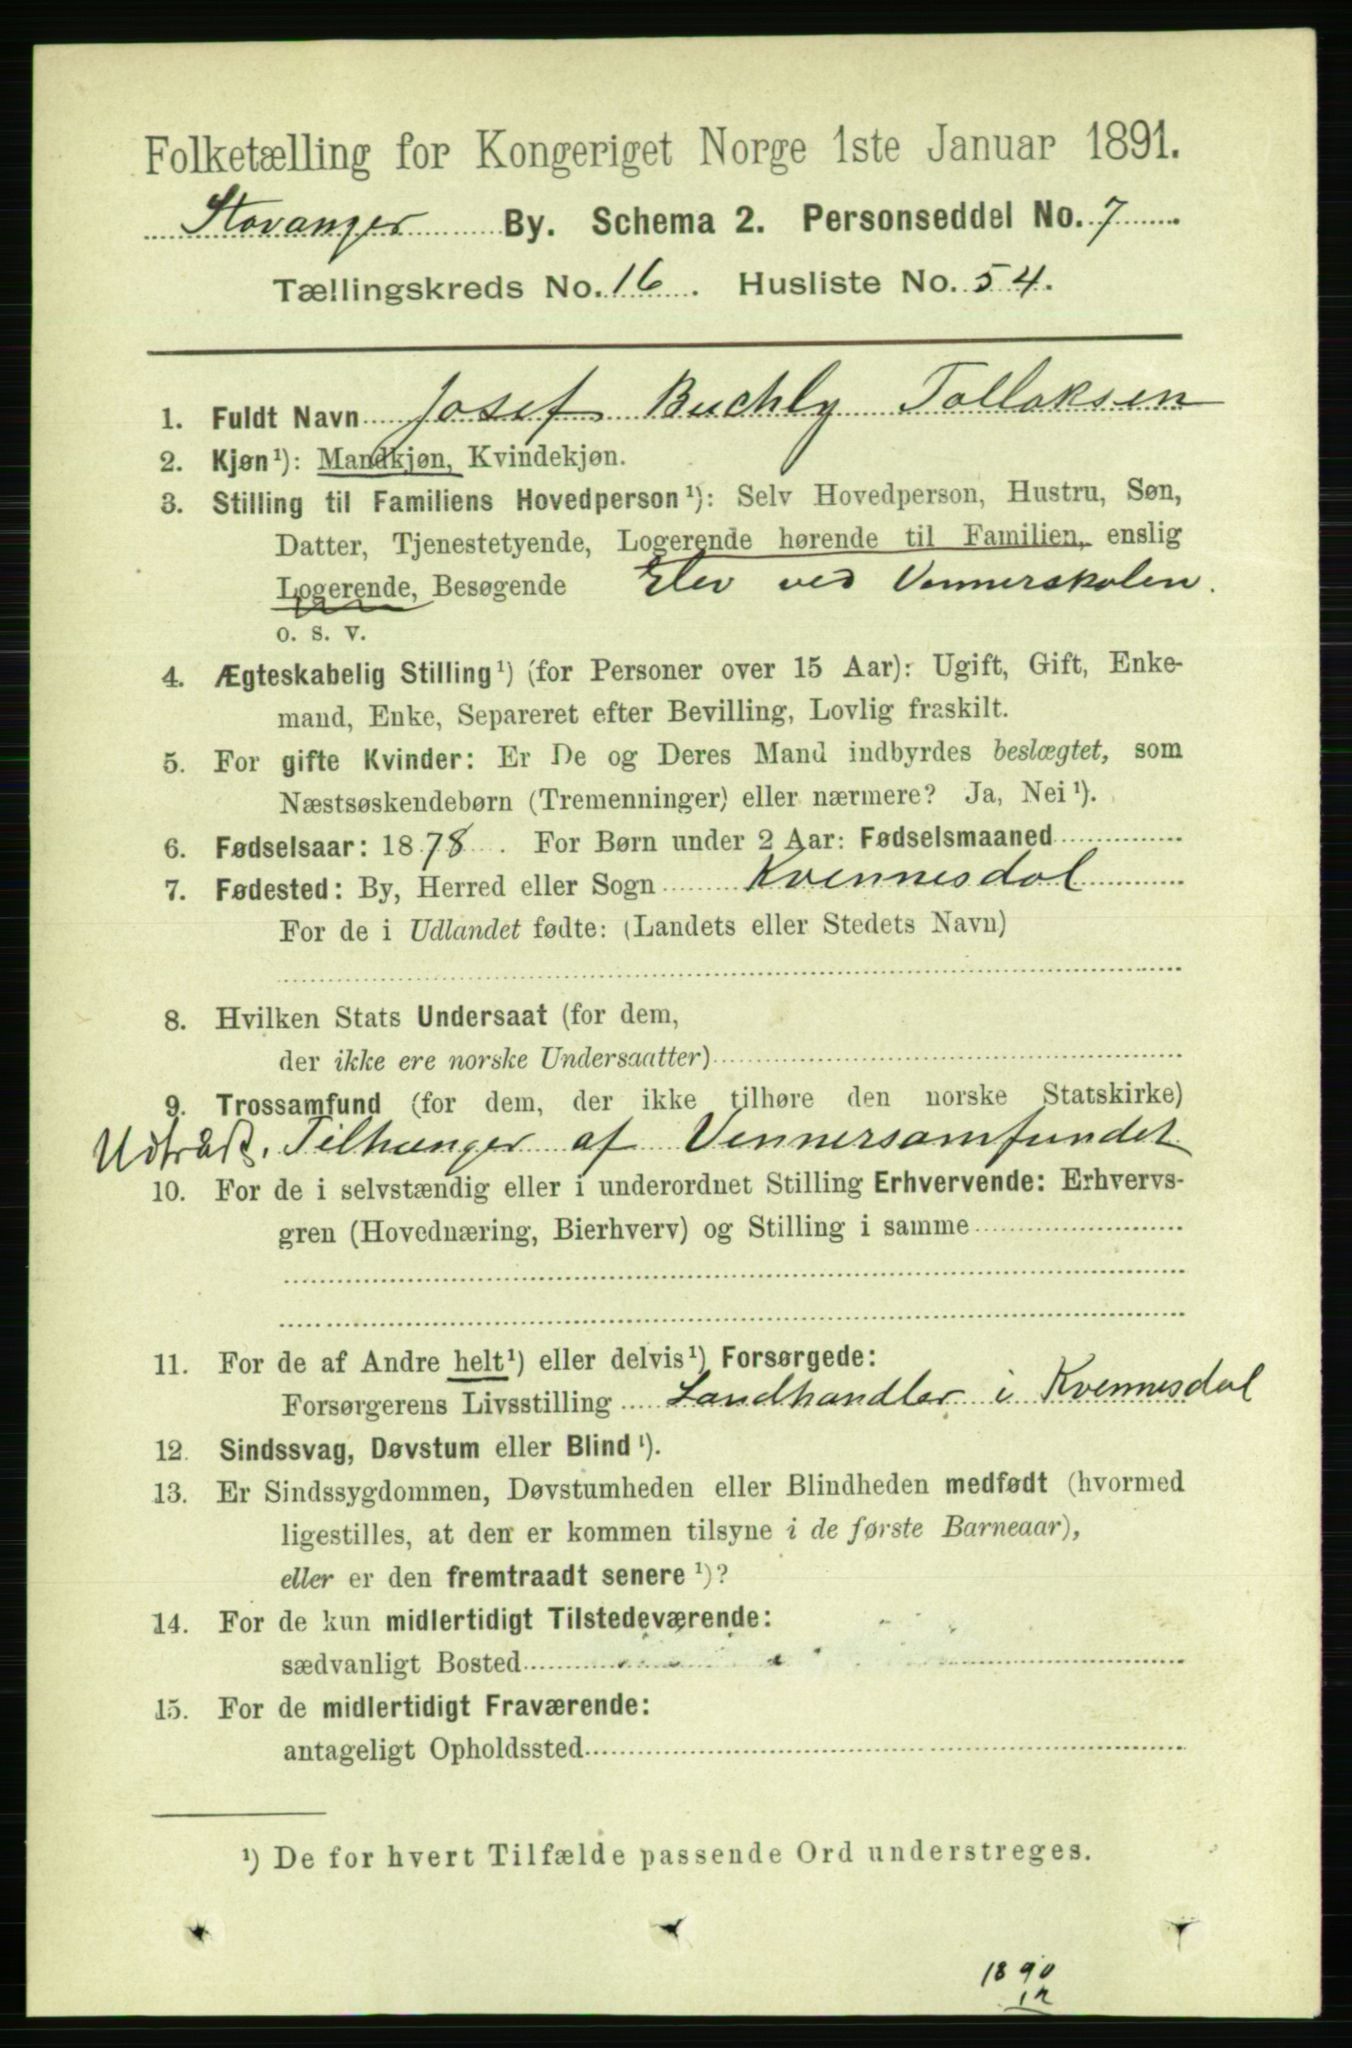 Folketælling for Kongeriget Norge 1ste Januar 1891.
Stavanger By. Schema 2. Personseddel No. 7
Tællingskreds No. 16. Husliste No. 54.
1. Fuldt Navn Josef Buchly Tollaksen
2. Kjøn¹): Mandkjøn, Kvindekjøn.
3. Stilling til Familiens Hovedperson¹): Selv Hovedperson, Hustru, Søn,
Datter, Tjenestetyende, Logerende hørende til Familien, enslig
Logerende, Besøgende Elev ved Vennerskolen.
o. s. v.
4. Ægteskabelig Stilling¹) (for Personer over 15 Aar): Ugift, Gift, Enke-
mand, Enke, Separeret efter Bevilling, Lovlig fraskilt.
5. For gifte Kvinder: Er De og Deres Mand indbyrdes beslægtet, som
Næstsøskendebørn (Tremenninger) eller nærmere? Ja, Nei¹).
6. Fødselsaar: 1878. For Børn under 2 Aar: Fødselsmaaned
7. Fødested: By, Herred eller Sogn Kvennesdal
For de i Udlandet fødte: (Landets eller Stedets Navn)
8. Hvilken Stats Undersaat (for dem,
der ikke ere norske Undersaatter)
9. Trossamfund (for dem, der ikke tilhøre den norske Statskirke)
Udtrådt. Tilhænger af Vennersamfundet
10. For de i selvstændig eller i underordnet Stilling Erhvervende: Erhvervs-
gren (Hovednæring, Bierhverv) og Stilling i samme
11. For de af Andre helt¹) eller delvis¹) Forsørgede:
Forsørgerens Livsstilling Landhandler i Kvennesdal
12. Sindssvag, Døvstum eller Blind¹).
13. Er Sindssygdommen, Døvstumheden eller Blindheden medfødt (hvormed
ligestilles, at den er kommen tilsyne i de første Barneaar),
eller er den fremtraadt senere¹)?
14. For de kun midlertidigt Tilstedeværende:
sædvanligt Bosted
15. For de midlertidigt Fraværende:
antageligt Opholdssted
¹) De for hvert Tilfælde passende Ord understreges.
1890
12